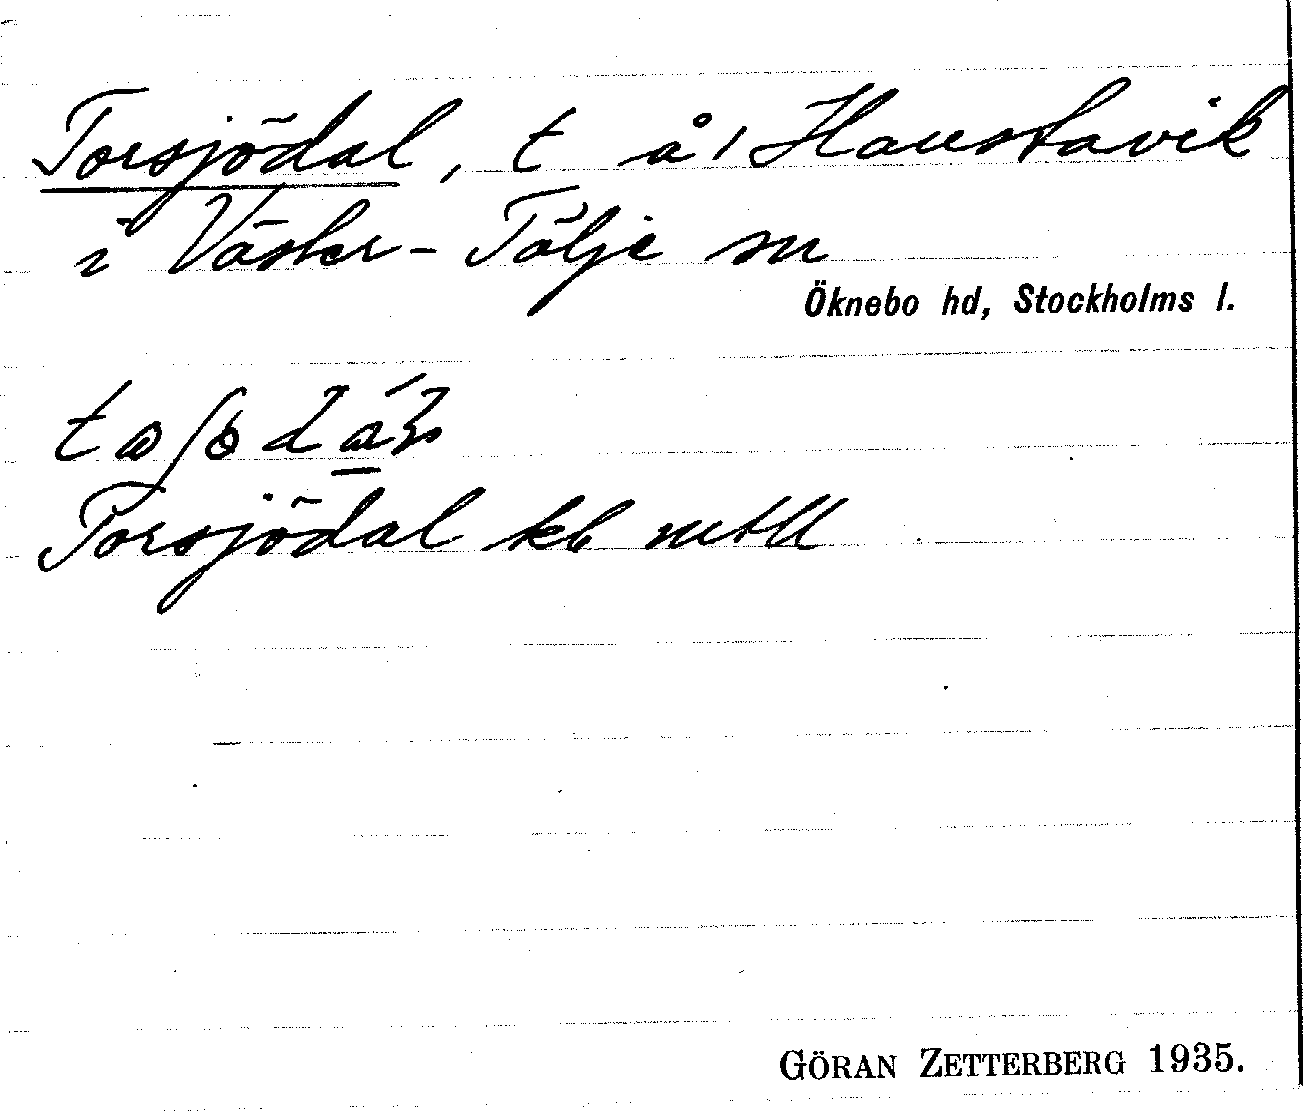 Torsjödal, t å 1 Haustavik
i Väster-Tälje sn
Öknebo hd, Stockholms l.
Torsjödal kb mtll
GÖRAN ZETTERBERG 1935.